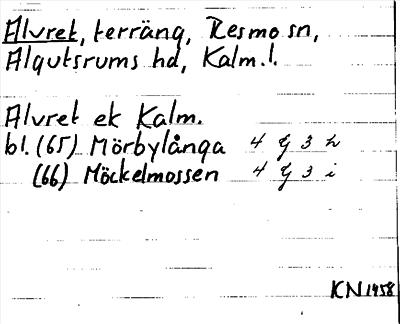 Alvret, terräng, Resmo sn,
Algutsrums hd, Kalm. l.
Alvret ek Kalm.
bl. (65) Mörbylånga 4 G 3 h
(66) Möckelmossen 4 G 3 i
KN 1958